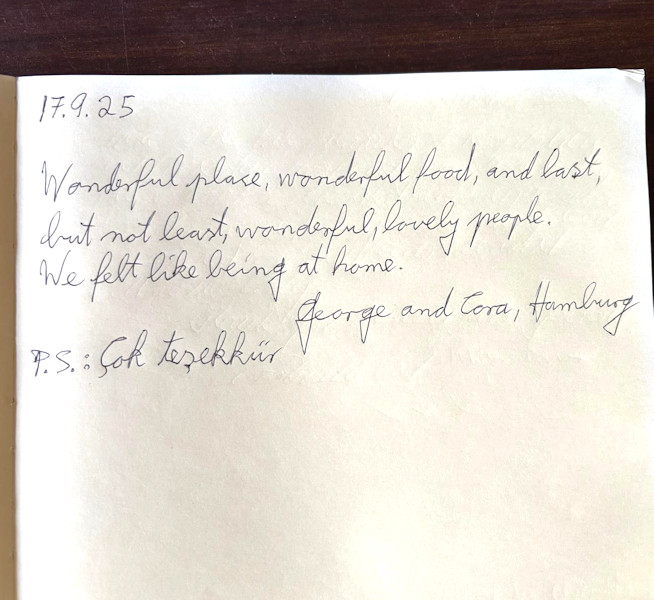 17.9.25
Wonderful place, wonderful food, and last,
but not least, wonderful, lovely people.
We felt like being at home.
George and Cora, Hamburg
P.S.: Çok teşekkür